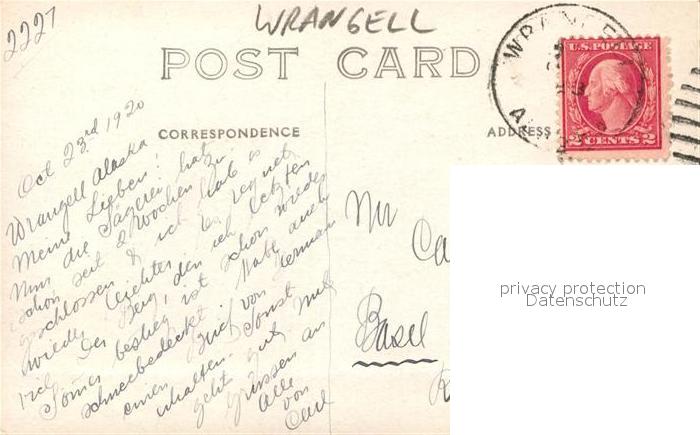 2227
WRANGELL
POST CARD
WRANGE
AL
U.S. POSTAGE
2 CENTS 2
CORRESPONDENCE
ADDRESS
Oct 23rd 1920
Wrangell Alaska
Meine Lieben!
Nun die Sägerei hat
schon seit 2 Wochen zu
geschlossen & ich hab es
wieder leichter. Es regnet
viel. Der Berg, den ich letzten
Somer bestieg ist schon wieder
schneebedeckt. Habe auch
einen Brief von Herman
erhalten. Sonst
geht gut mit
Grüssen an
alle
von
Carl
Mr
Ca
Basel
privacy protection
Datenschutz